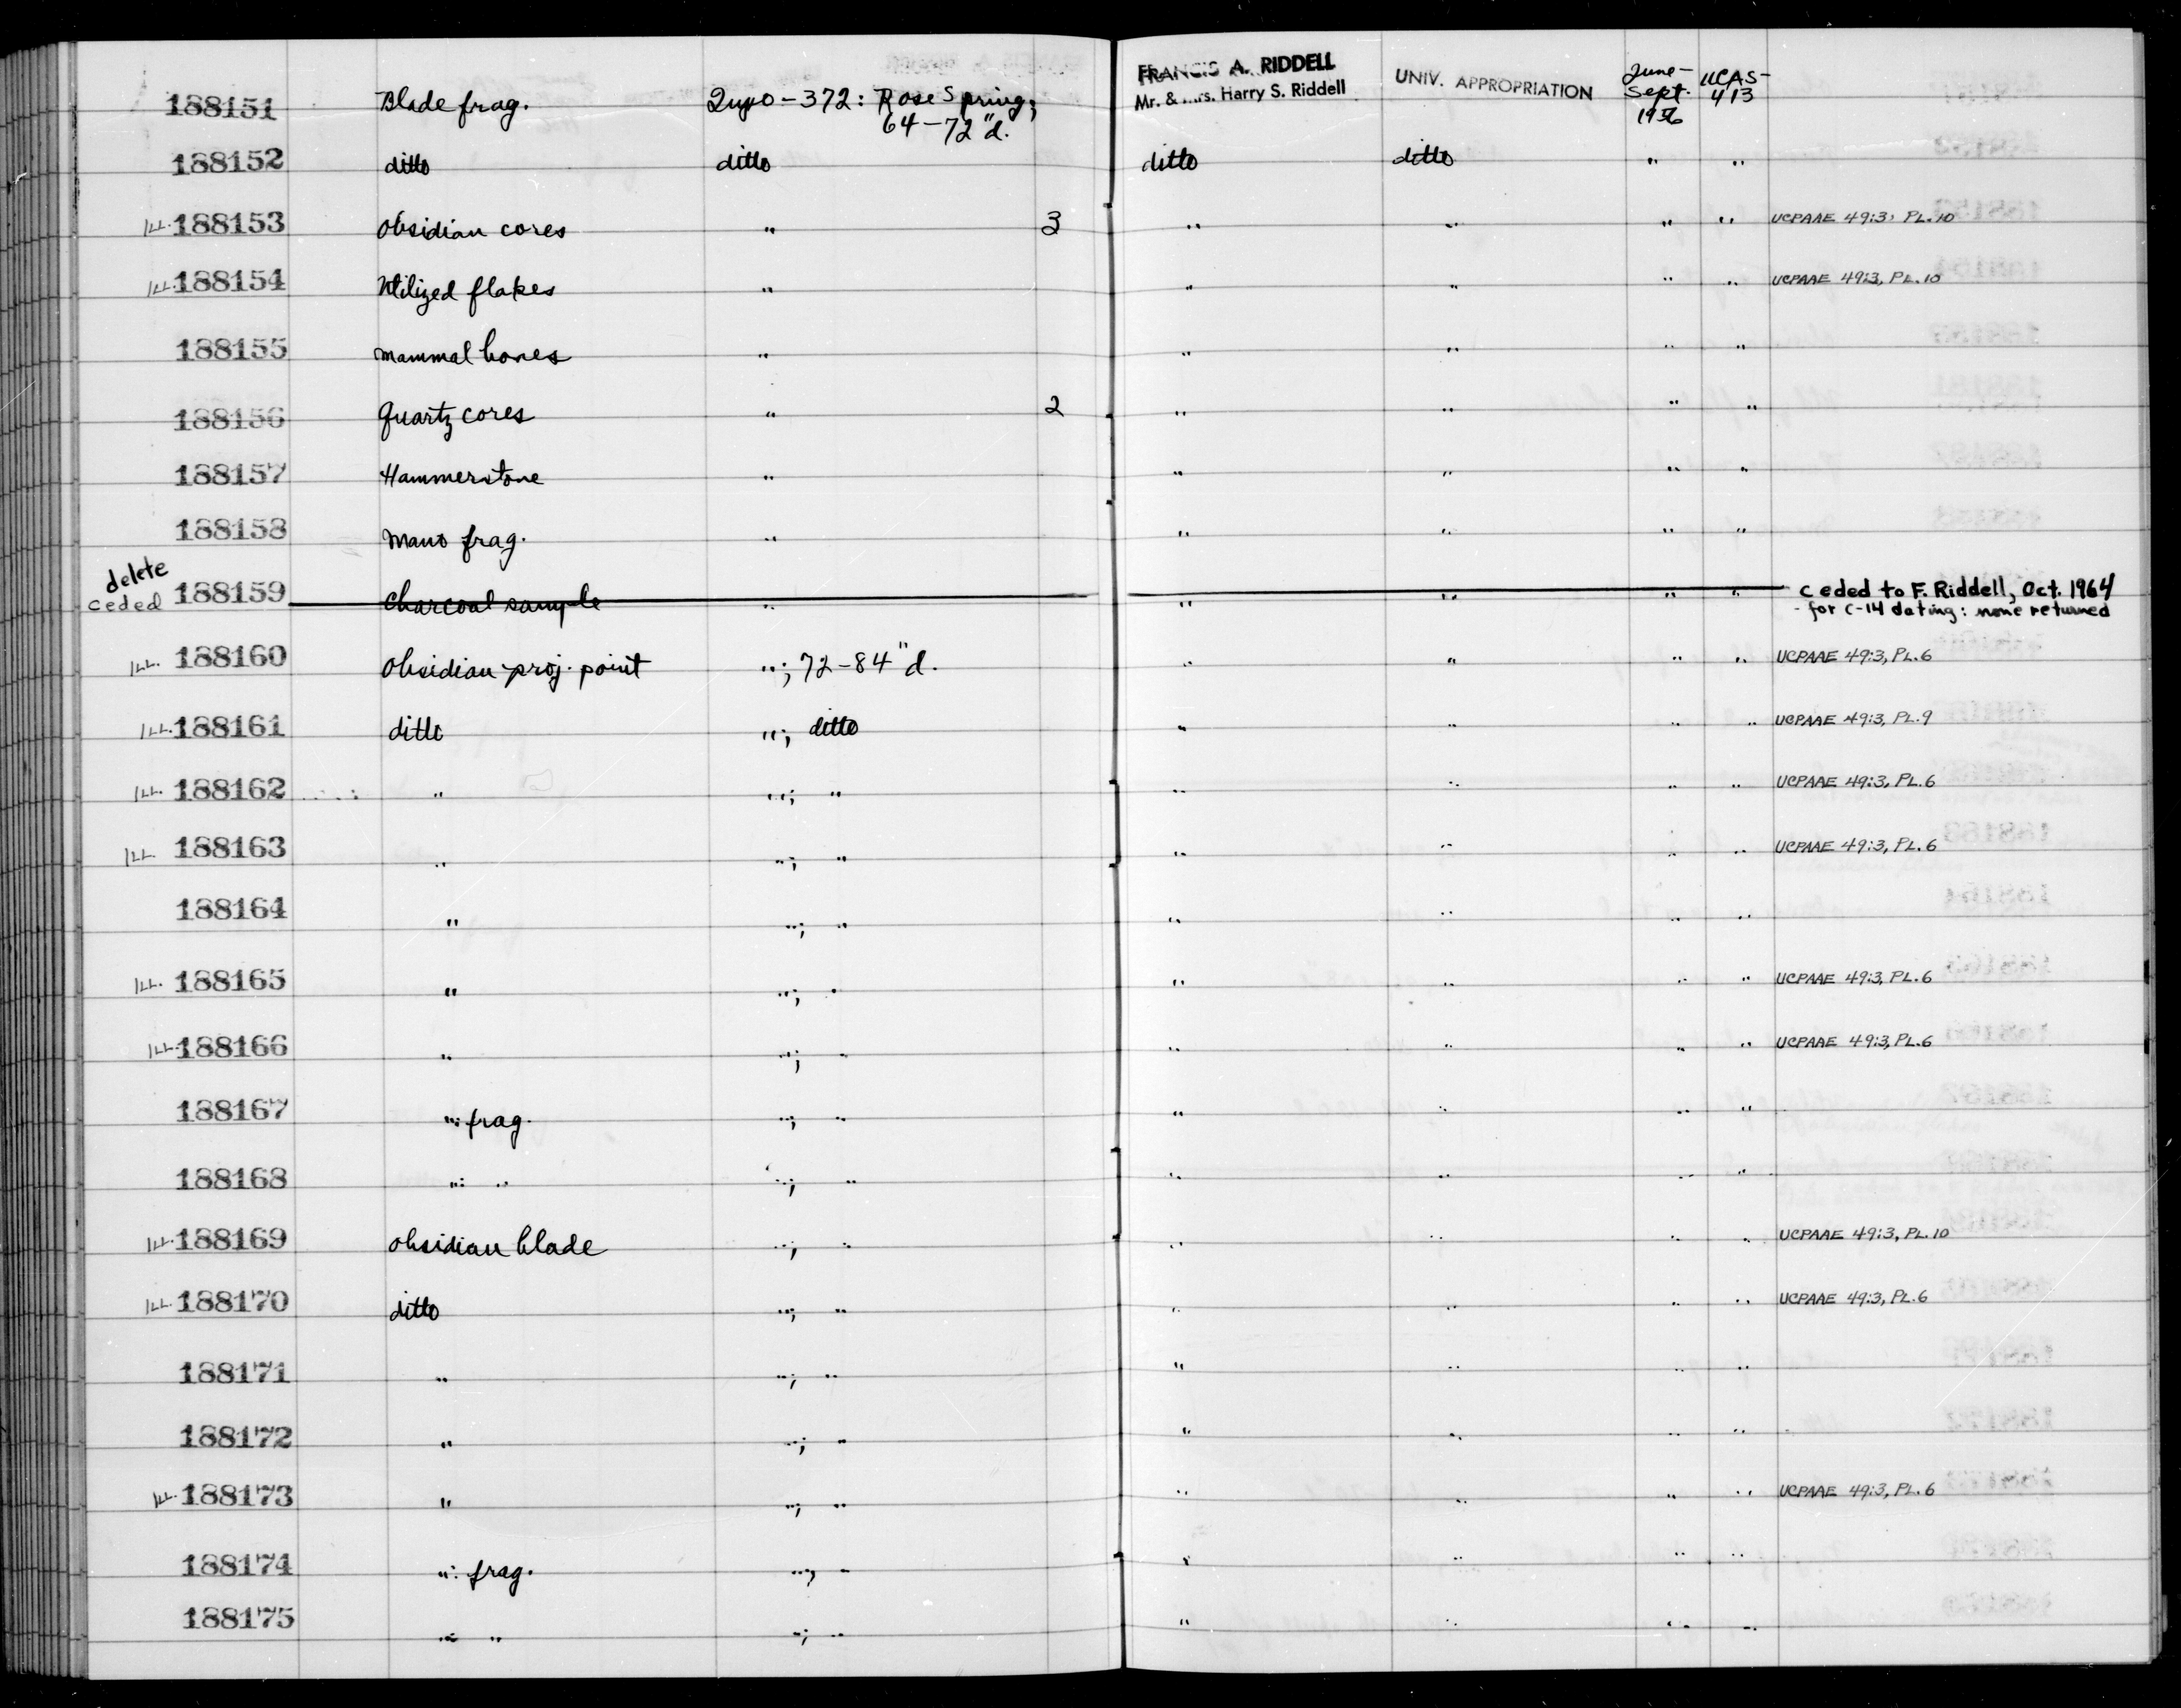 188151 Blade frag. Inyo-372: Rose Spring; 64-72"d. FRANCIS A. RIDDELL Mr. & Mrs. Harry S. Riddell UNIV. APPROPRIATION June-Sept. 1956 UCAS-413
188152 ditto ditto ditto ditto " "
ILL. 188153 Obsidian cores " 3 " " " " UCPAAE 49:3, PL.10
ILL. 188154 Utilized flakes " " " " " UCPAAE 49:3, PL.10
188155 Mammal bones " " " " "
188156 Quartz cores " 2 " " " "
188157 Hammerstone " " " " "
188158 Mano frag. " " " " "
delete
ceded 188159 Charcoal sample " " " " " ceded to F. Riddell, Oct. 1964
- for C-14 dating: none returned
ILL. 188160 Obsidian proj. point "; 72-84"d. " " " " UCPAAE 49:3, PL.6
ILL. 188161 ditto "; ditto " " " " UCPAAE 49:3, PL.9
ILL. 188162 " "; " " " " " UCPAAE 49:3, PL.6
ILL. 188163 " "; " " " " " UCPAAE 49:3, PL.6
188164 " "; " " " " "
ILL. 188165 " "; " " " " " UCPAAE 49:3, PL.6
ILL. 188166 " "; " " " " " UCPAAE 49:3, PL.6
188167 ": frag. "; " " " " "
188168 ": " "; " " " " "
ILL. 188169 Obsidian blade "; " " " " " UCPAAE 49:3, PL.10
ILL. 188170 ditto "; " " " " " UCPAAE 49:3, PL.6
188171 " "; " " " " "
188172 " "; " " " " "
ILL. 188173 " "; " " " " " UCPAAE 49:3, PL.6
188174 ": frag. "; " " " " "
188175 ": " "; " " " " "